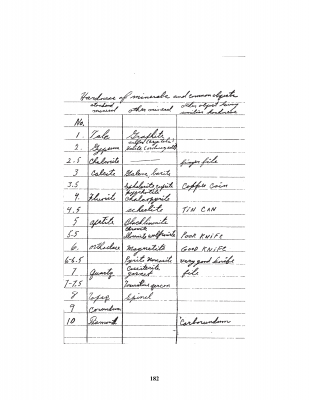 Hardness of minerals and common objects
standard mineral other mineral other object having similar hardness
No.
1 Talc Graphite
2. Gypsum
2.5 Chalcosite —— finger
3 Calcite Galena, barite
3.5 Sphalerite Copper Coin
4 Chalcopyrite
4.5 scheelite TIN CAN
5 apatite
5.5 Poor KNIFE
6. Orthoclase Magnetite Good KNIFE
6-6.5 Pyrite very good knife
7 Quartz Cassiterite garnet file
7-7.5 Tourmaline
8 Topaz Spinel
9 Corundum
10 Diamond Carborundum
182